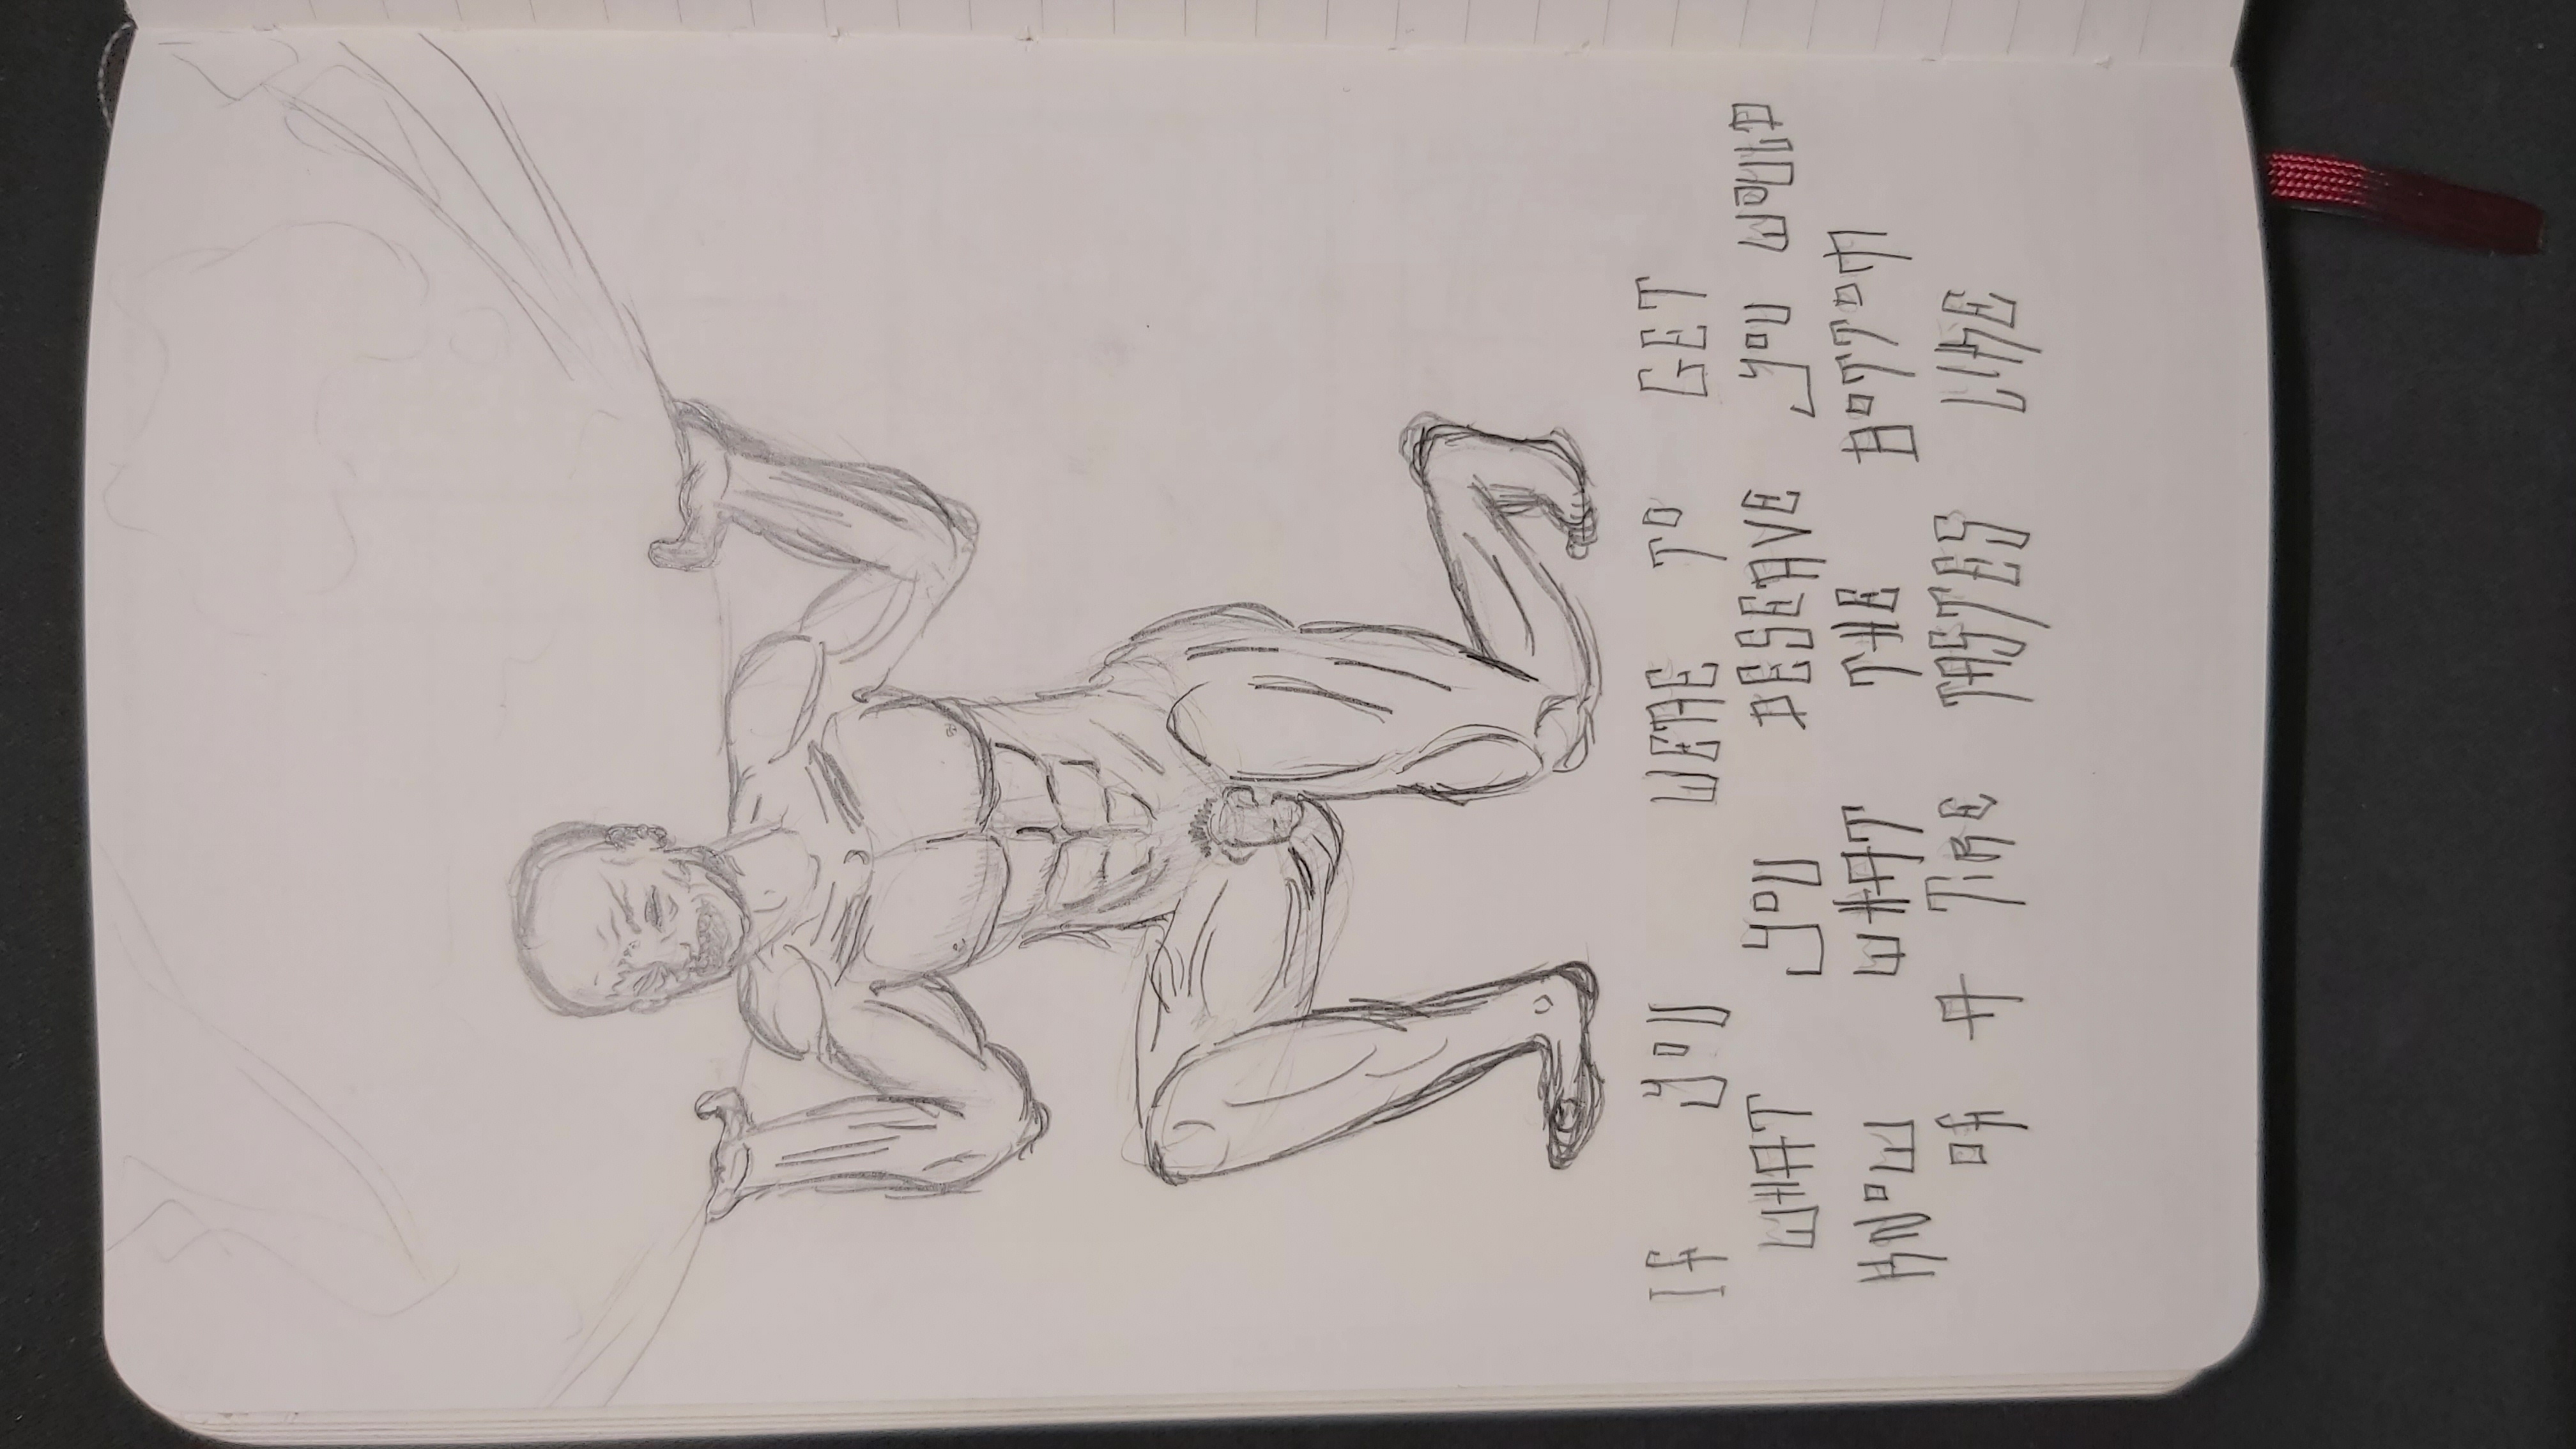 IF YOU WERE TO GET
WHAT YOU DESERVE YOU WOULD
KNOW WHAT THE BOTTOM
OF A TIRE TASTES LIKE